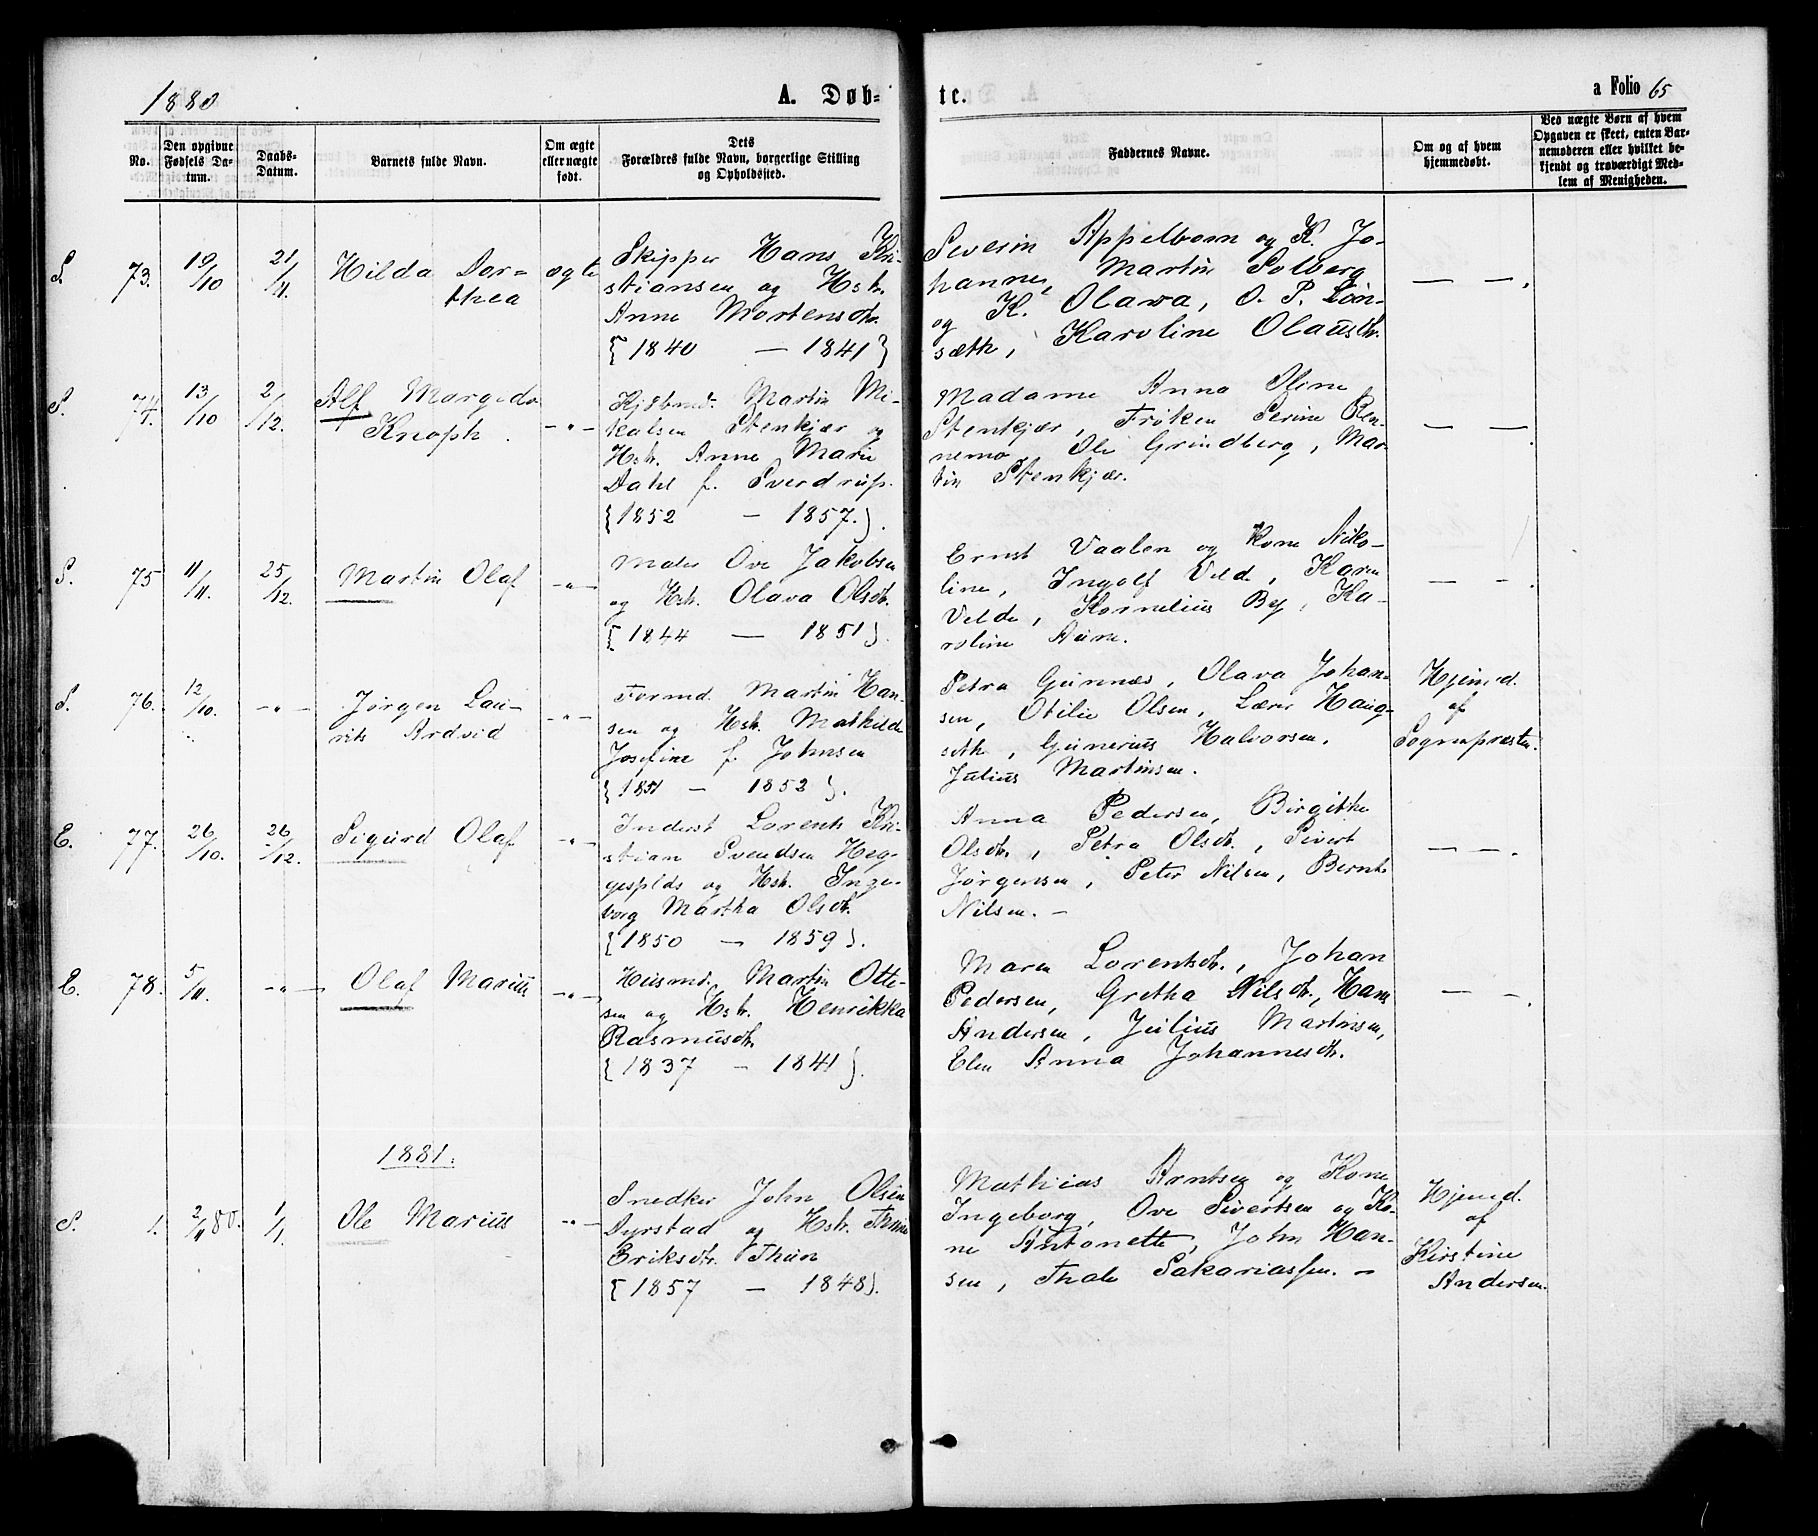 1880
A. Døb-
te.
a Folio 65
No.
Den opgivne
Fødsels Da-
tum.
Daabs-
Datum.
Barnets fulde Navn.
Om ægte
eller uægte
født.
Dets
Forældres fulde Navn, borgerlige Stilling
og Opholdssted.
Faddernes Navne.
Om og af hvem
hjemmedøbt.
Ved uægte Børn af hvem
Opgaven er skeet, enten Bar-
nemoderen eller hvilket be-
kjendt og troværdigt Med-
lem af Menigheden.
S. 73. 19/10 21/11. Hilda Dor-
thea
ægte
Skipper Hans Kri-
stiansen og Hstr.
Anne Mortensdtr.
{1840 — 1841}
Severin Appelbom og K. Jo-
hanne, Martin Solberg
og K. Olava, O. P. Løn-
sæth, Karoline Olausdtr.
— —.
S. 74. 13/10 2/12. Alf Margido
Knoph.
—"—
Kjøbmd. Martin Mi-
kalsen Stenkjær og
Hstr. Anne Marie
Dahl f. Sverdrup.
{1852 — 1857.}.
Madame Anna Oline
Stenkjær, Frøken Serine Ren-
nemo, Ole Grindberg, Mar-
tin Stenkjær.
— —
S. 75 11/11. 25/12. Martin Olaf
—"—
Maler Ove Jakobsen
og Hstr. Olava Olsdtr.
{1844 — 1851}.
Ernst Vaalen og Kone Niko-
line, Ingolf Velde, Karen
Velde, Kornelius By, Ka-
roline Aune.
— —.
S. 76. 12/10. —"— Jørgen Lau-
rits Ardvid
—"—
Formd. Martin Han-
sen og Hstr. Mathilde
Josefine f. Johnsen
{1851 — 1852}.
Petra Gunnæs, Olava Johan-
sen, Otilie Olsen, Lærer Haug-
seth, Gunerius Halvorsen,
Julius Martinsen.
Hjemd.
af
Sognepræsten.
E. 77. 26/10. 26/12. Sigurd Olaf
—"—
Inderst Lorents Kri-
stian Svendsen Heg-
gesplds og Hstr. Inge-
borg Martha Olsdtr.
{1850 — 1859}.
Anna Pedersen, Birgithe
Olsdtr., Petra Olsdtr., Sivert
Jørgensen, Peter Nilsen, Bernt
Nilsen. —
— —.
E. 78. 5/11. —"— Olaf Marius
—"—
Husmd. Martin Otte-
sen og Hstr. Henrikka
Rasmusdtr.
{1837 — 1841}.
Maren Lorentsdtr., Johan
Pedersen, Gretha Nilsdtr., Hans
Andersen, Julius Martinsen,
Elen Anna Johannesdtr.
— —.
1881.
S. 1. 2/11 80. 1/1. Ole Marius
—"—
Snedker John Olsen
Dyrstad og Hstr. Anne
Eriksdtr. Thun
{1857 — 1848}.
Mathias Arntsen og Kone
Ingeborg, Ove Sivertsen og Ko-
ne Antonette, John Han-
sen, Thale Sakariassen. —
Hjemd.
af
Kirstine
Andersen.